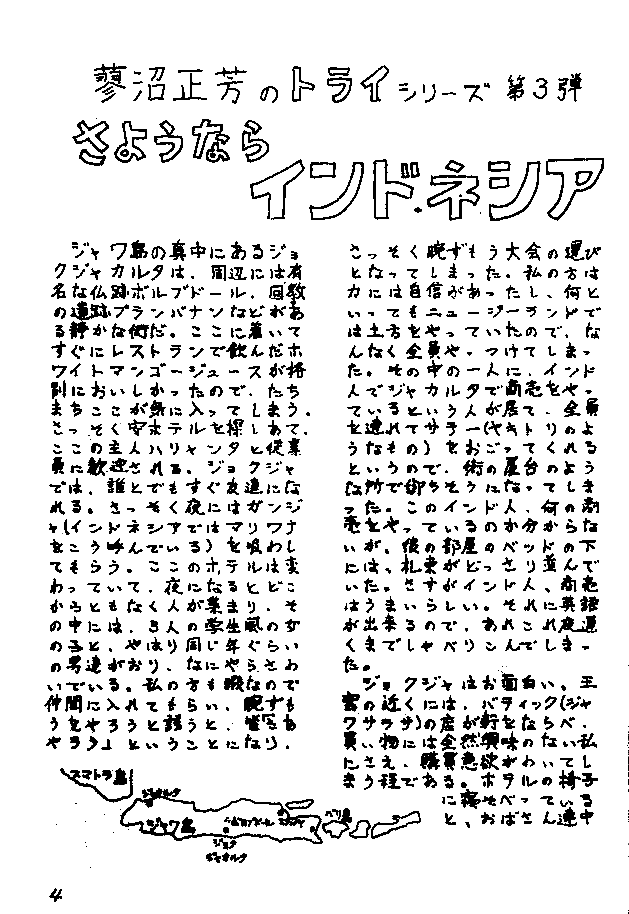 蓼沼正芳のトライシリーズ第3弾
さようなら
インド・ネシア
ジャワ島の真中にあるジョ
クジャカルタは、周辺には有
名な仏跡ボルブドール、回教
の遺跡プランバナンなどがあ
る静かな街だ。ここに着いて
すぐにレストランで飲んだホ
ワイトマンゴージュースが格
別においしかったので、たち
まちここが気に入ってしまう。
さっそく安ホテルを探しあて、
ここの主人ハリャンタと従業
員に歓迎される。ジョクジャ
では、誰とでもすぐ友達にな
れる。さっそく夜にはガンジ
ャ(インドネシアではマリワナ
をこう呼んでいる)を吸わし
てもらう。ここのホテルは変
わっていて、夜になるとどこ
からともなく人が集まり、そ
の中には、3人の学生風の女
の子と、やはり同じ年ぐらい
の男達がおり、なにやらさわ
いでいる。私の方も暇なので
仲間に入れてもらい、腕ずも
うをやろうと誘うと、皆
やろう」ということになり、
さっそく腕ずもう大会の運び
となってしまった。私の方は
力には自信があったし、何と
いってもニュージーランドで
は土方をやっていたので、な
んなく全員やっつけてしまっ
た。その中の一人に、インド
人でジャカルタで商売をやっ
ているという人が居て、全員
を連れてサテー(ヤキトリのよ
うなもの)をおごってくれる
というので、街の屋台のよう
な所で御ちそうになってしま
った。このインド人、何の商
売をやっているのか分からな
いが、彼の部屋のベッドの下
には、札束がどっさり並んで
いた。さすがインド人、商売
はうまいらしい。それに英語
が出来るので、あれこれ夜遅
くまでしゃべりこんでしまっ
た。
ジョクジャはお面白い。王
宮の近くには、バティック(ジャ
ワサラサ)の店が軒をならべ、
買い物には全然興味のない私
にさえ、購買意欲がわいてし
まう程である。ホテルの椅子
に寝そべっている
と、おばさん連中
スマトラ島
ジャカルタ
ジャワ島
ジョクジャカルタ
バリ島
4